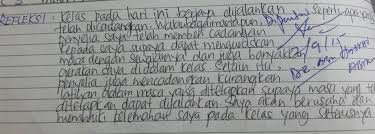 REFLEKSI : Kelas pada hari ini berjaya dijalankan seperti apa yang
telah dicadangkan. Walaubagaimanapun,
penyelia saya telah memberi cadangan
kepada saya supaya dapat menguruskan
masa dengan sewajarnya dan juga banyakkan
gerakan saya di dalam kelas. Selain itu,
penyelia juga mencadangkan kurangkan
latihan dalam masa yang ditetapkan supaya masa yang telah
ditetapkan dapat dijalankan. Saya akan berusaha dan
membaiki kelemahan saya pada kelas yang seterusnya
/9/15